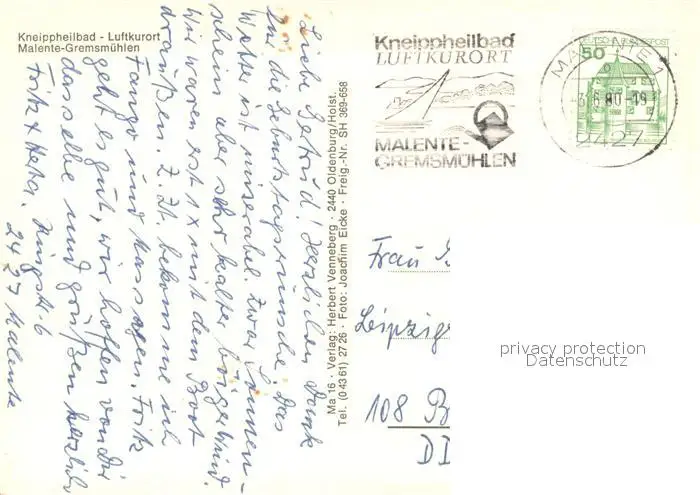 Kneippheilbad - Luftkurort
Malente-Gremsmühlen
Liebe Gertrud! Herzlichen Dank
für die Geburtstagswünsche. Das
Wetter ist miserabel. Zwar Sonnen-
schein aber sehr kalter böiger Wind.
Wir waren erst 1 x mit dem Boot
draußen. Z. Zt. bekomme ich
Fango und Massagen. Fritz
geht es gut, wir hoffen von Dir
dasselbe und grüßen herzlich
Fritz + Heta. 6
2427 Malente
Ma 16 · Verlag: Herbert Venneberg · 2440 Oldenburg/Holst.
Tel. (0 43 61) 27 26 · Foto: Joachim Eicke · Freig.-Nr. SH 369-658
Kneippheilbad
LUFTKURORT
MALENTE-
GREMSMÜHLEN
DEUTSCHE BUNDESPOST
50
MALENTE 1
-3.6.80-19
2427
Frau
Leipzig
108 B
DD
privacy protection
Datenschutz